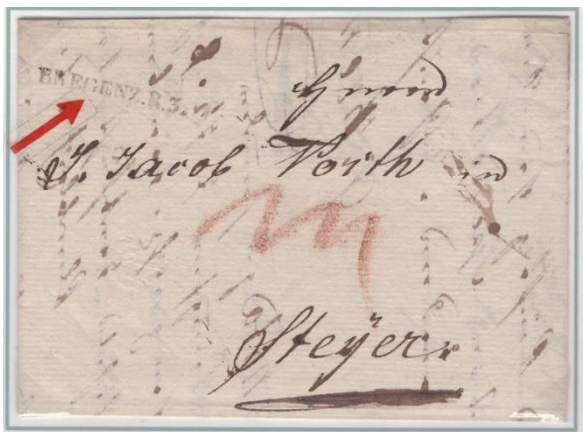 BREGENZ.R.3.
Herrn
J. Jacob Vorth in
Steÿer.